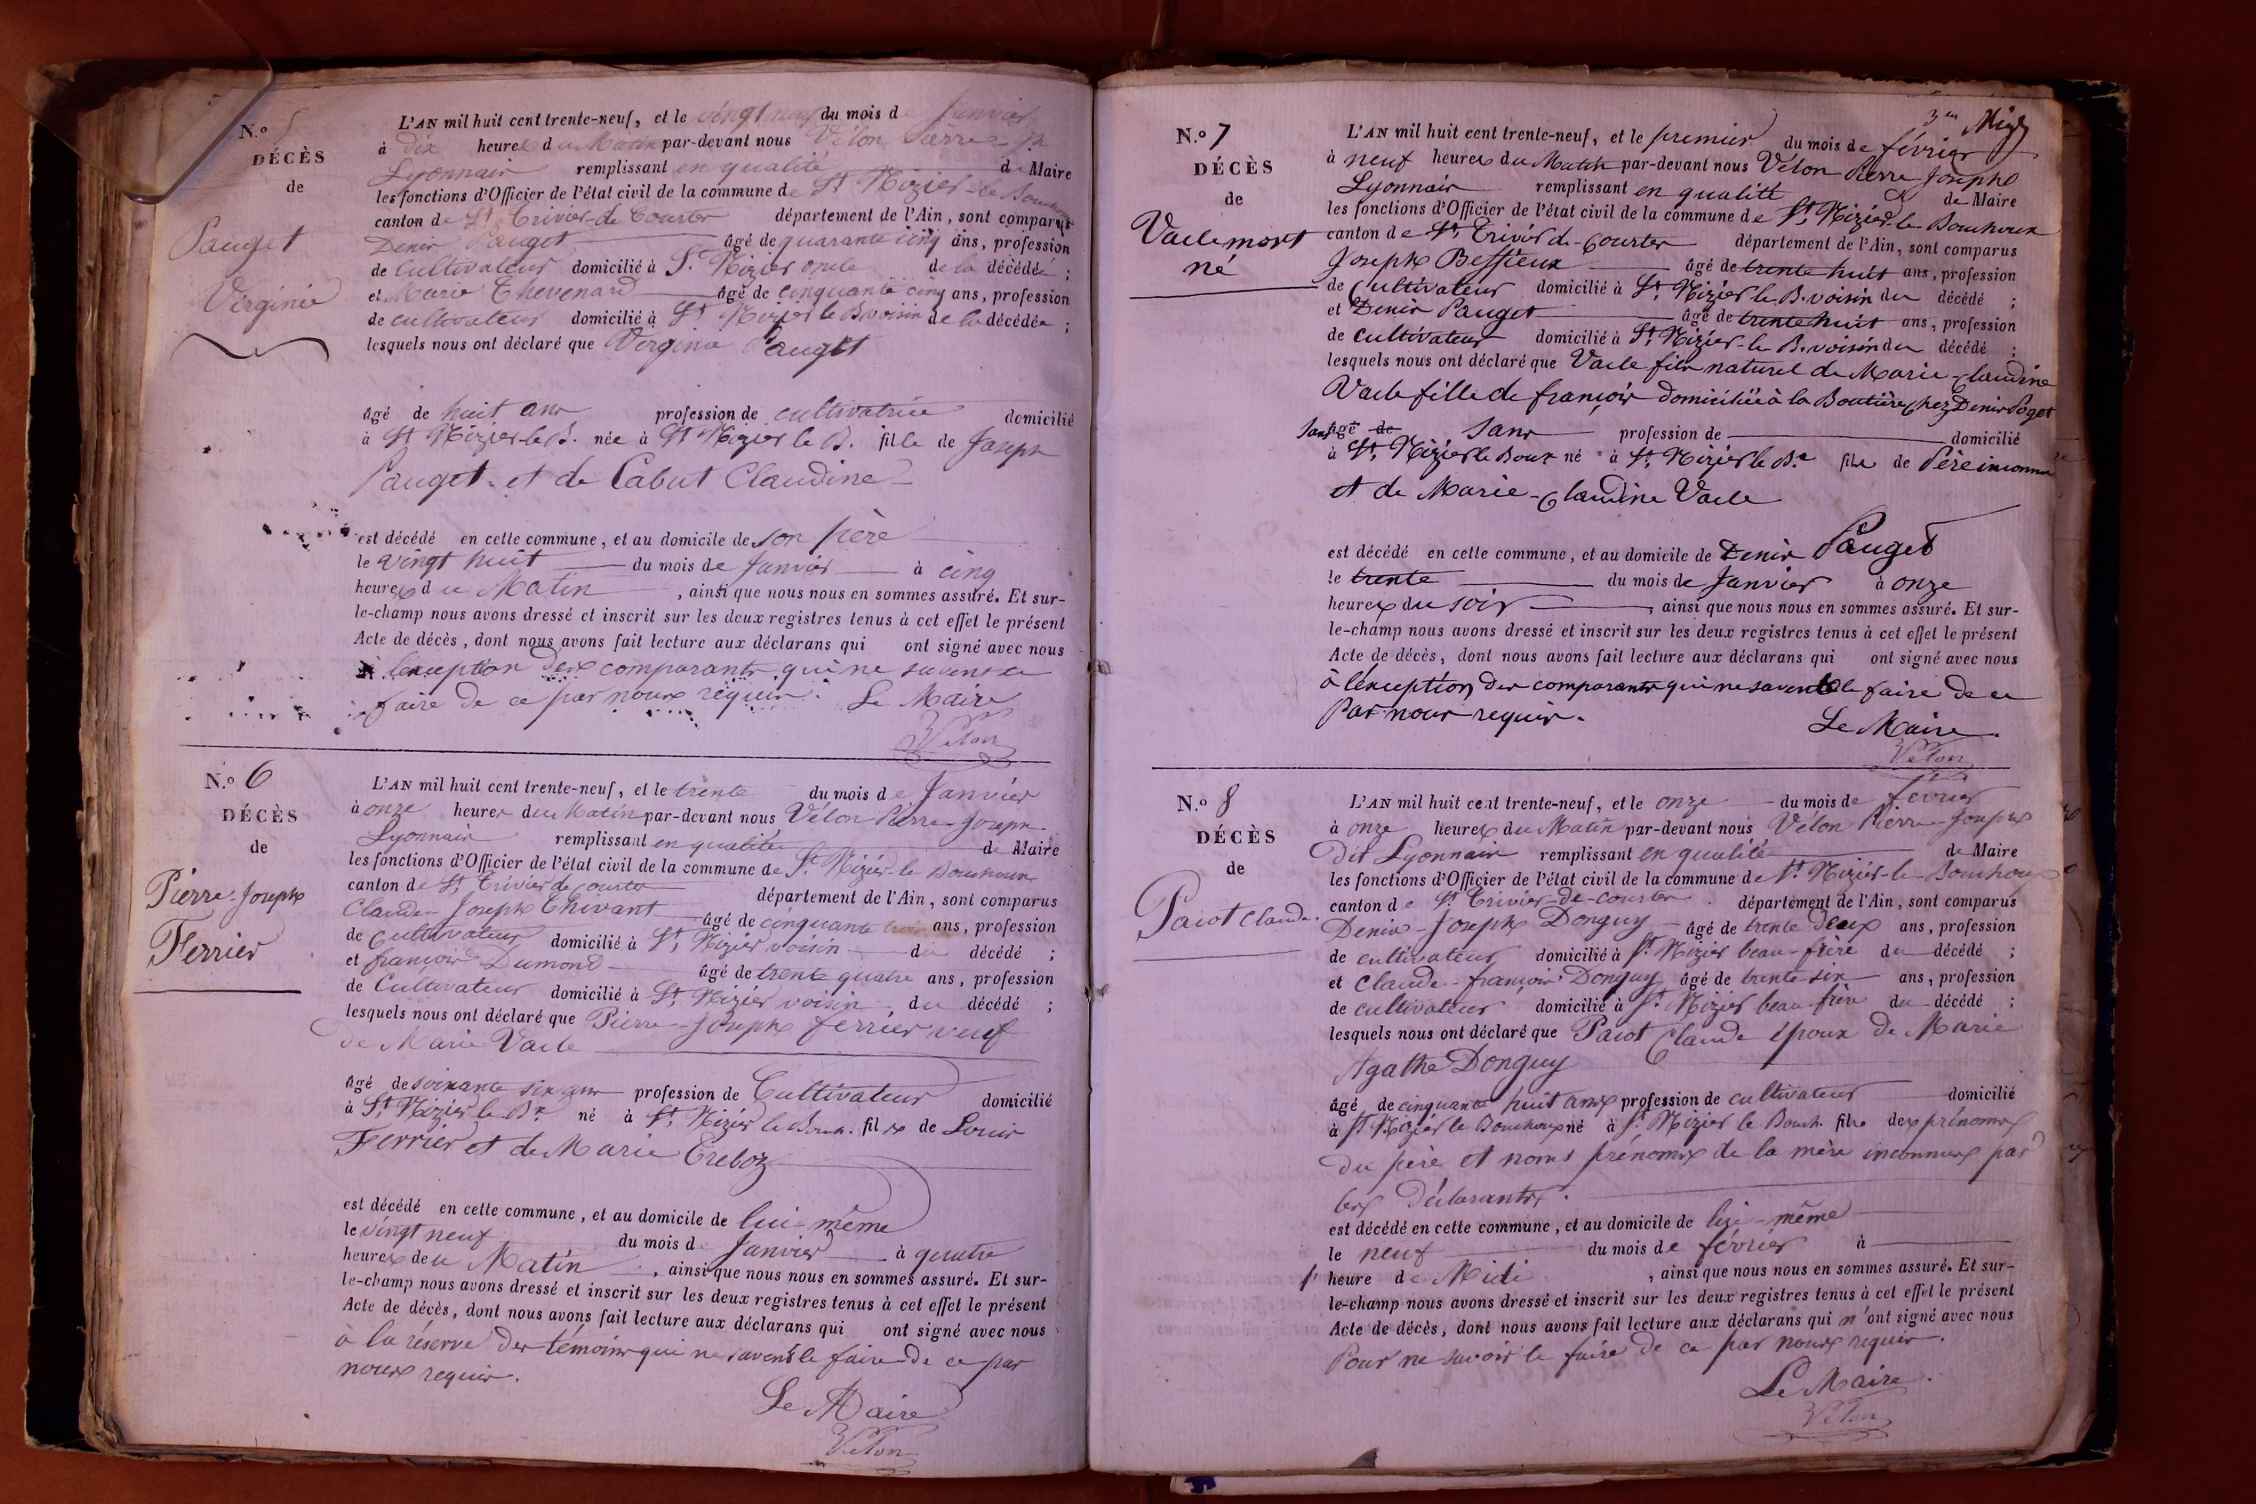 N.º 5
DÉCÈS
de
Pauget
Virginie
L'AN mil huit cent trente-neuf, et le vingt neuf du mois de Janvier
à dix heures du Matin par-devant nous Vélon Pierre Jh
Lyonnais remplissant en qualité de Maire
les fonctions d'Officier de l'état civil de la commune de St Nizier-le-Bouchoux
canton de St Trivier-de-Courtes département de l'Ain, sont comparus
Denis Pauget âgé de quarante cinq ans, profession
de Cultivateur domicilié à St Nizier oncle de la décédée ;
et Marie Thevenard âgé de cinquante cinq ans, profession
de cultivateur domicilié à St Nizier le B. voisin de la décédée ;
lesquels nous ont déclaré que Virginie Pauget
âgé de huit ans profession de cultivatrice domicilié
à St Nizier le B. née à St Nizier le B. fille de Joseph
Pauget et de Cabut Claudine
est décédé en cette commune, et au domicile de son père
le vingt huit du mois de Janvier à cinq
heures du Matin, ainsi que nous nous en sommes assuré. Et sur-
le-champ nous avons dressé et inscrit sur les deux registres tenus à cet effet le présent
Acte de décès, dont nous avons fait lecture aux déclarans qui ont signé avec nous
à l'exception des comparants qui ne savent le
faire de ce par nous requis. Le Maire
Vélon
N.º 6
DÉCÈS
de
Pierre-Joseph
Ferrier
L'AN mil huit cent trente-neuf, et le trente du mois de Janvier
à onze heures du Matin par-devant nous Vélon Pierre-Joseph
Lyonnais remplissant en qualité de Maire
les fonctions d'Officier de l'état civil de la commune de St Nizier-le-Bouchoux
canton de St Trivier de Courtes département de l'Ain, sont comparus
Claude-Joseph Thivant âgé de cinquante trois ans, profession
de Cultivateur domicilié à St Nizier voisin du décédé ;
et françois Dumond âgé de trente quatre ans, profession
de Cultivateur domicilié à St Nizier voisin du décédé ;
lesquels nous ont déclaré que Pierre-Joseph ferrier veuf
de Marie Vacle
âgé de soixante six ans profession de Cultivateur domicilié
à St Nizier le Bx né à St Nizier le Bouch. fils de Louis
Ferrier et de Marie Treboz
est décédé en cette commune, et au domicile de lui-même
le vingt neuf du mois d Janvier à quatre
heures de u Matin, ainsi que nous nous en sommes assuré. Et sur-
le-champ nous avons dressé et inscrit sur les deux registres tenus à cet effet le présent
Acte de décès, dont nous avons fait lecture aux déclarans qui ont signé avec nous
à la réserve des témoins qui ne savent le faire de ce par
nous requis.
Le Maire
Vélon
N.º 7
DÉCÈS
de
Vacle mort
né
L'AN mil huit cent trente-neuf, et le premier du mois de février
à neuf heures du Matin par-devant nous Vélon Pierre Joseph
Lyonnais remplissant en qualité de Maire
les fonctions d'Officier de l'état civil de la commune de St Nizier-le-Bouchoux
canton de St Trivier de-Courtes département de l'Ain, sont comparus
Joseph Bessieux âgé de trente huit ans, profession
de Cultivateur domicilié à St Nizier le B. voisin du décédé ;
et Denis Pauget âgé de trente huit ans, profession
de cultivateur domicilié à St Nizier-le B. voisin du décédé ;
lesquels nous ont déclaré que Vacle fils naturel de Marie-Claudine
Vacle fille de françois domiciliée à la Boutière chez Denis Poget
sans âgé de sans profession de domicilié
à St Nizier le Boux né à St Nizier le Bx fils de Père inconnu
et de Marie-Claudine Vacle
est décédé en cette commune, et au domicile de Denis Pauget
le trente du mois de Janvier à onze
heures du soir, ainsi que nous nous en sommes assuré. Et sur-
le-champ nous avons dressé et inscrit sur les deux registres tenus à cet effet le présent
Acte de décès, dont nous avons fait lecture aux déclarans qui ont signé avec nous
à l'exception des comparants qui ne savent le faire de ce
par nous requis.
Le Maire
Vélon
N.º 8
DÉCÈS
de
Pacot Claude
L'AN mil huit cent trente-neuf, et le onze du mois de fevrier
à onze heures du Matin par-devant nous Vélon Pierre-Joseph
dit Lyonnais remplissant en qualité de Maire
les fonctions d'Officier de l'état civil de la commune de St Nizier-le-Bouchoux
canton de St Trivier-de-courtes département de l'Ain, sont comparus
Denis-Joseph Donguy âgé de trente deux ans, profession
de cultivateur domicilié à St Nizier beau-frère du décédé ;
et Claude-françois Donguy âgé de trente-six ans, profession
de cultivateur domicilié à St Nizier beau-frère du décédé ;
lesquels nous ont déclaré que Pacot Claude époux de Marie
Agathe Donguy
âgé de cinquante huit ans profession de cultivateur domicilié
à St Nizier le Bouchoux né à St Nizier le Bouch. fils des prénoms
du père et noms prénoms de la mère inconnus par
les déclarants.
est décédé en cette commune, et au domicile de lui-même
le neuf du mois de février à
heure de Midi, ainsi que nous nous en sommes assuré. Et sur-
le-champ nous avons dressé et inscrit sur les deux registres tenus à cet effet le présent
Acte de décès, dont nous avons fait lecture aux déclarans qui n'ont signé avec nous
Pour ne savoir le faire de ce par nous requis.
Le Maire
Vélon